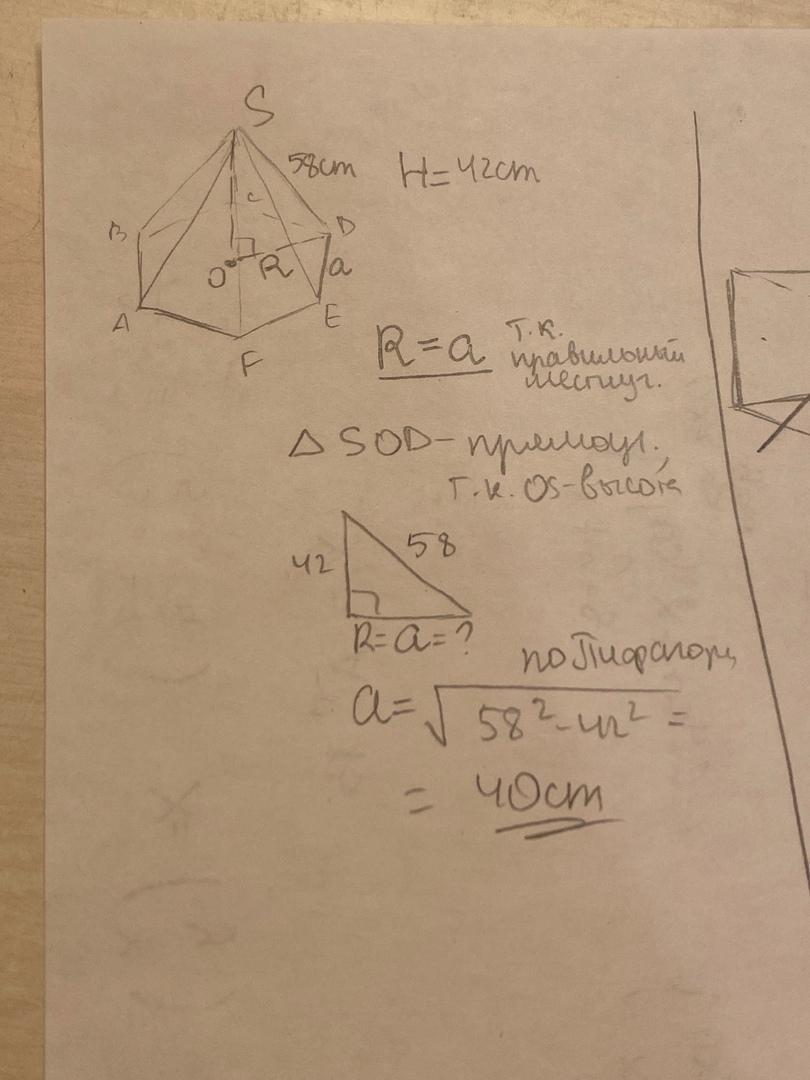 S
58cm
H=42cm
B
C
D
O
R
a
A
E
F
R=a т.к.
правильный
шестиуг.
△SOD-прямоуг.
т.к. OS-высота
42
58
R=a=?
по Пифагору
a=√58²-42² =
= 40cm